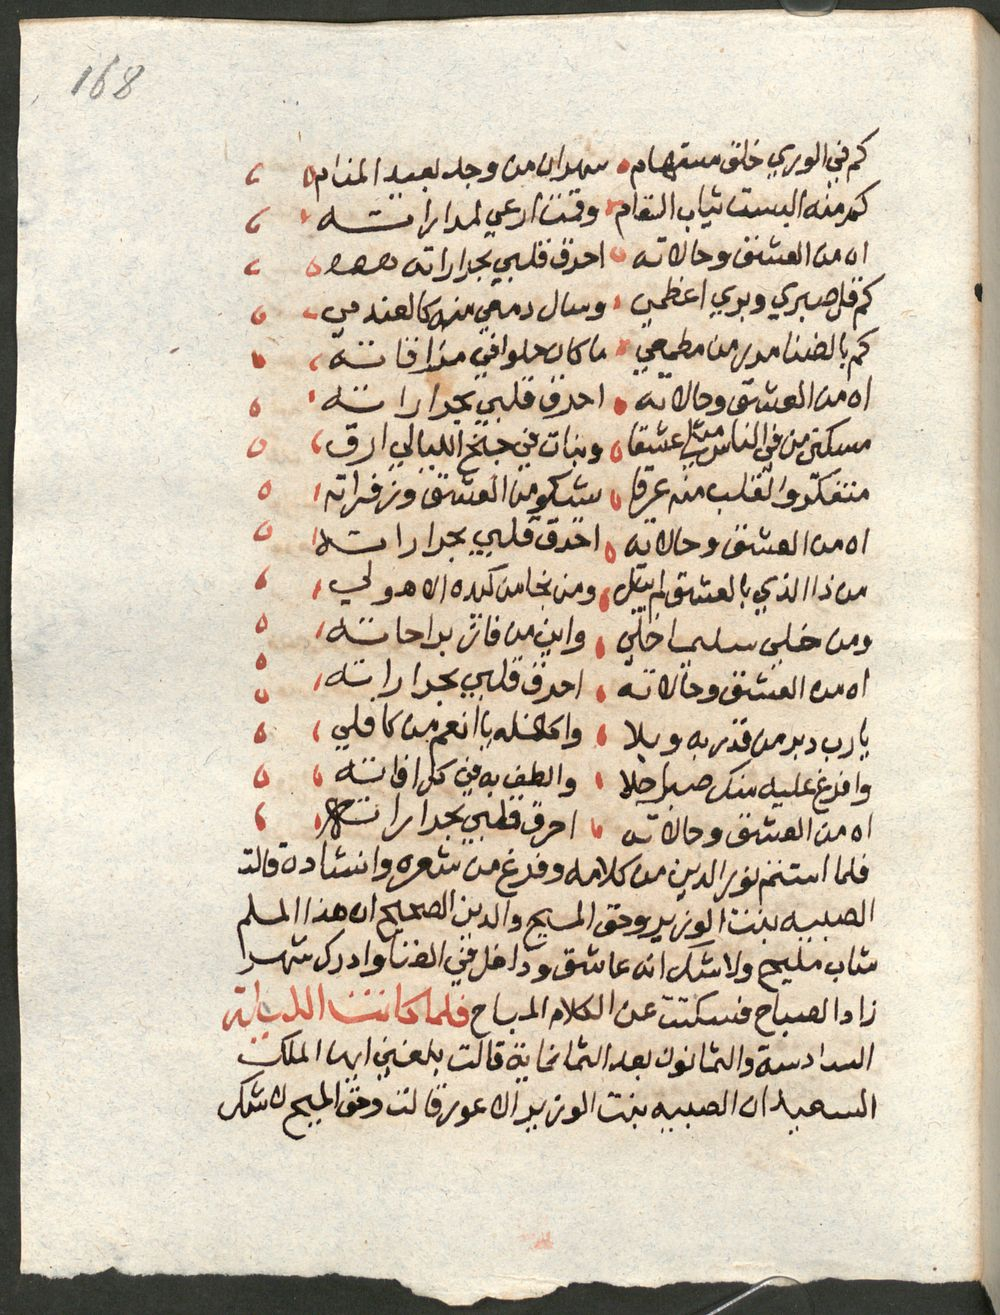 168
كم في الوري خلق مستهام سهران من وجد بعيد المنام
كم منه البست ثياب السقام وقمت ارعي لمداراته
اه من العشق وحالاته احرق قلبي بحراراته
كم قل صبري وبري اعظمي وسال دمعي منه كالعندمي
كم بالضنا مرر من مطعمي ما كان حلوا في مذاقاته
اه من العشق وحالاته احرق قلبي بحراراته
مسكين من في الناس مثلي عشقا وبات في جنح الليالي ارق
متفكر والقلب منه غرقا يشكو من العشق وزفراته
اه من العشق وحالاته احرق قلبي بحراراته
من ذا الذي بالعشق لم يبتل ومن نجا من كيده الاهولي
ومن خلي سليما خلي واين من فاز براحاته
اه من العشق وحالاته احرق قلبي بحراراته
يا رب دبر من قد به وبلا واكفله يا انعم من كافلي
وافرغ عليه منك صبرا جلا والطف به في كل افاته
اه من العشق وحالاته احرق قلبي بحراراته
فلما استتم نور الدين من كلامه وفرغ من شعره وانشاده قالت
الصبيه بنت الوزير وحق المسيح والدين الصحيح ان هذا المسلم
شاب مليح ولا شك انه عاشق وداخل في الفنا وادرك شهر
زاد الصباح فسكتت عن الكلام المباح فلما كانت الليلة
السادسة والثمانون بعد الثمانماية قالت بلغني ايها الملك
السعيد ان الصبيه بنت الوزير الاعور قالت وحق المسيح لا شك